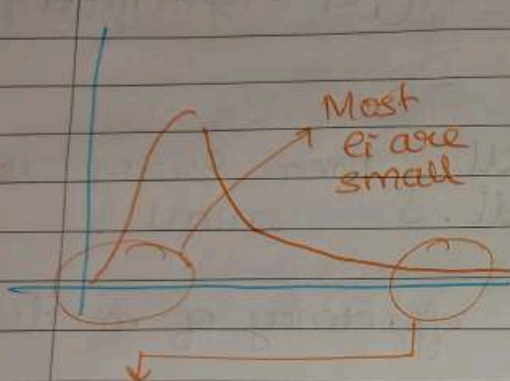 Most
ei are
small